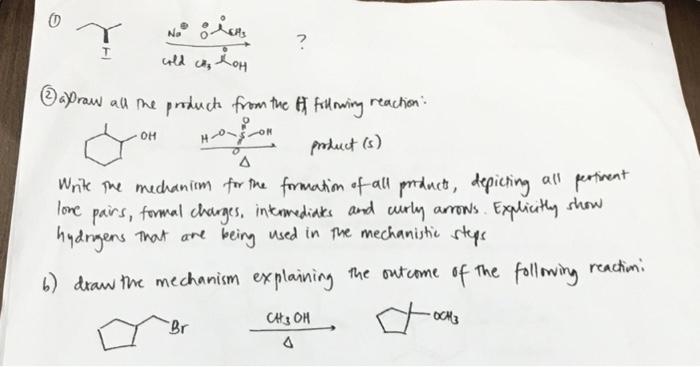 ①
Na⊕ ⊖O CH3
I
cold CH3 OH
?
② a) Draw all the products from the following reaction:
OH
H-O-S-OH
O
O
Δ
product (s)
Write the mechanism for the formation of all products, depicting all pertinent
lone pairs, formal charges, intermediates and curly arrows. Explicitly show
hydrogens that are being used in the mechanistic steps
b) draw the mechanism explaining the outcome of the following reaction:
Br
CH3 OH
Δ
OCH3